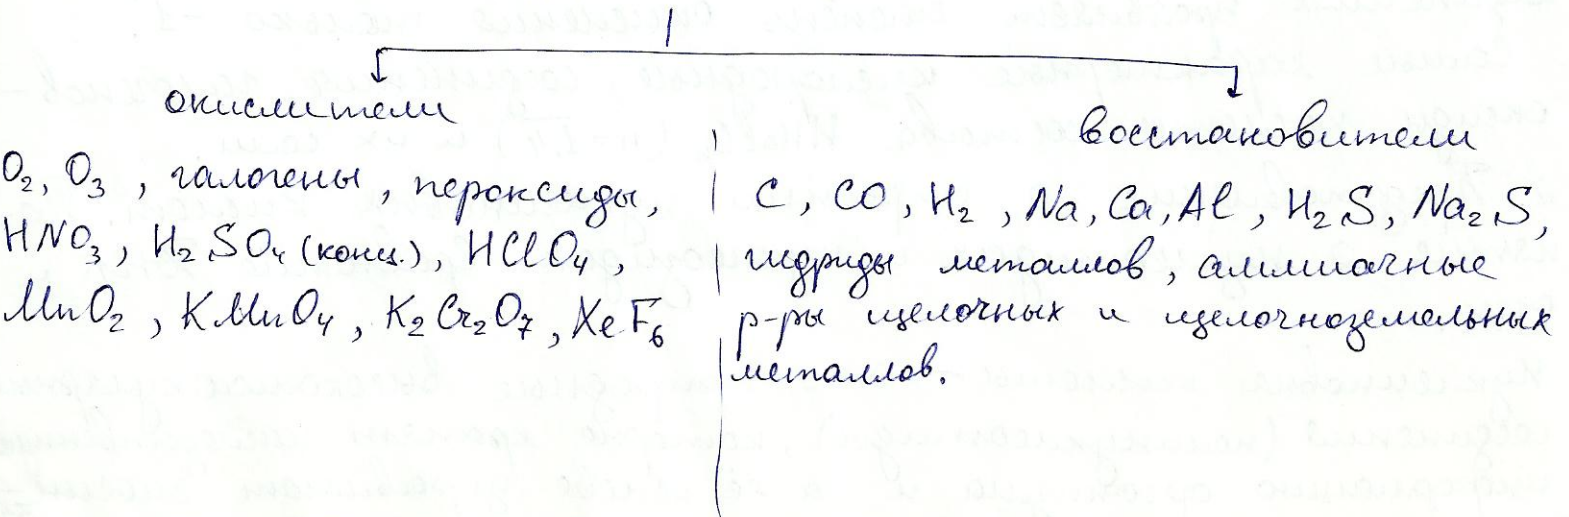 окислители
O₂, O₃, галогены, пероксиды,
HNO₃, H₂SO₄ (конц.), HClO₄,
MnO₂, KMnO₄, K₂Cr₂O₇, XeF₆
восстановители
C, CO, H₂, Na, Ca, Al, H₂S, Na₂S,
гидриды металлов, аммиачные
р-ры щелочных и щелочноземельных
металлов.